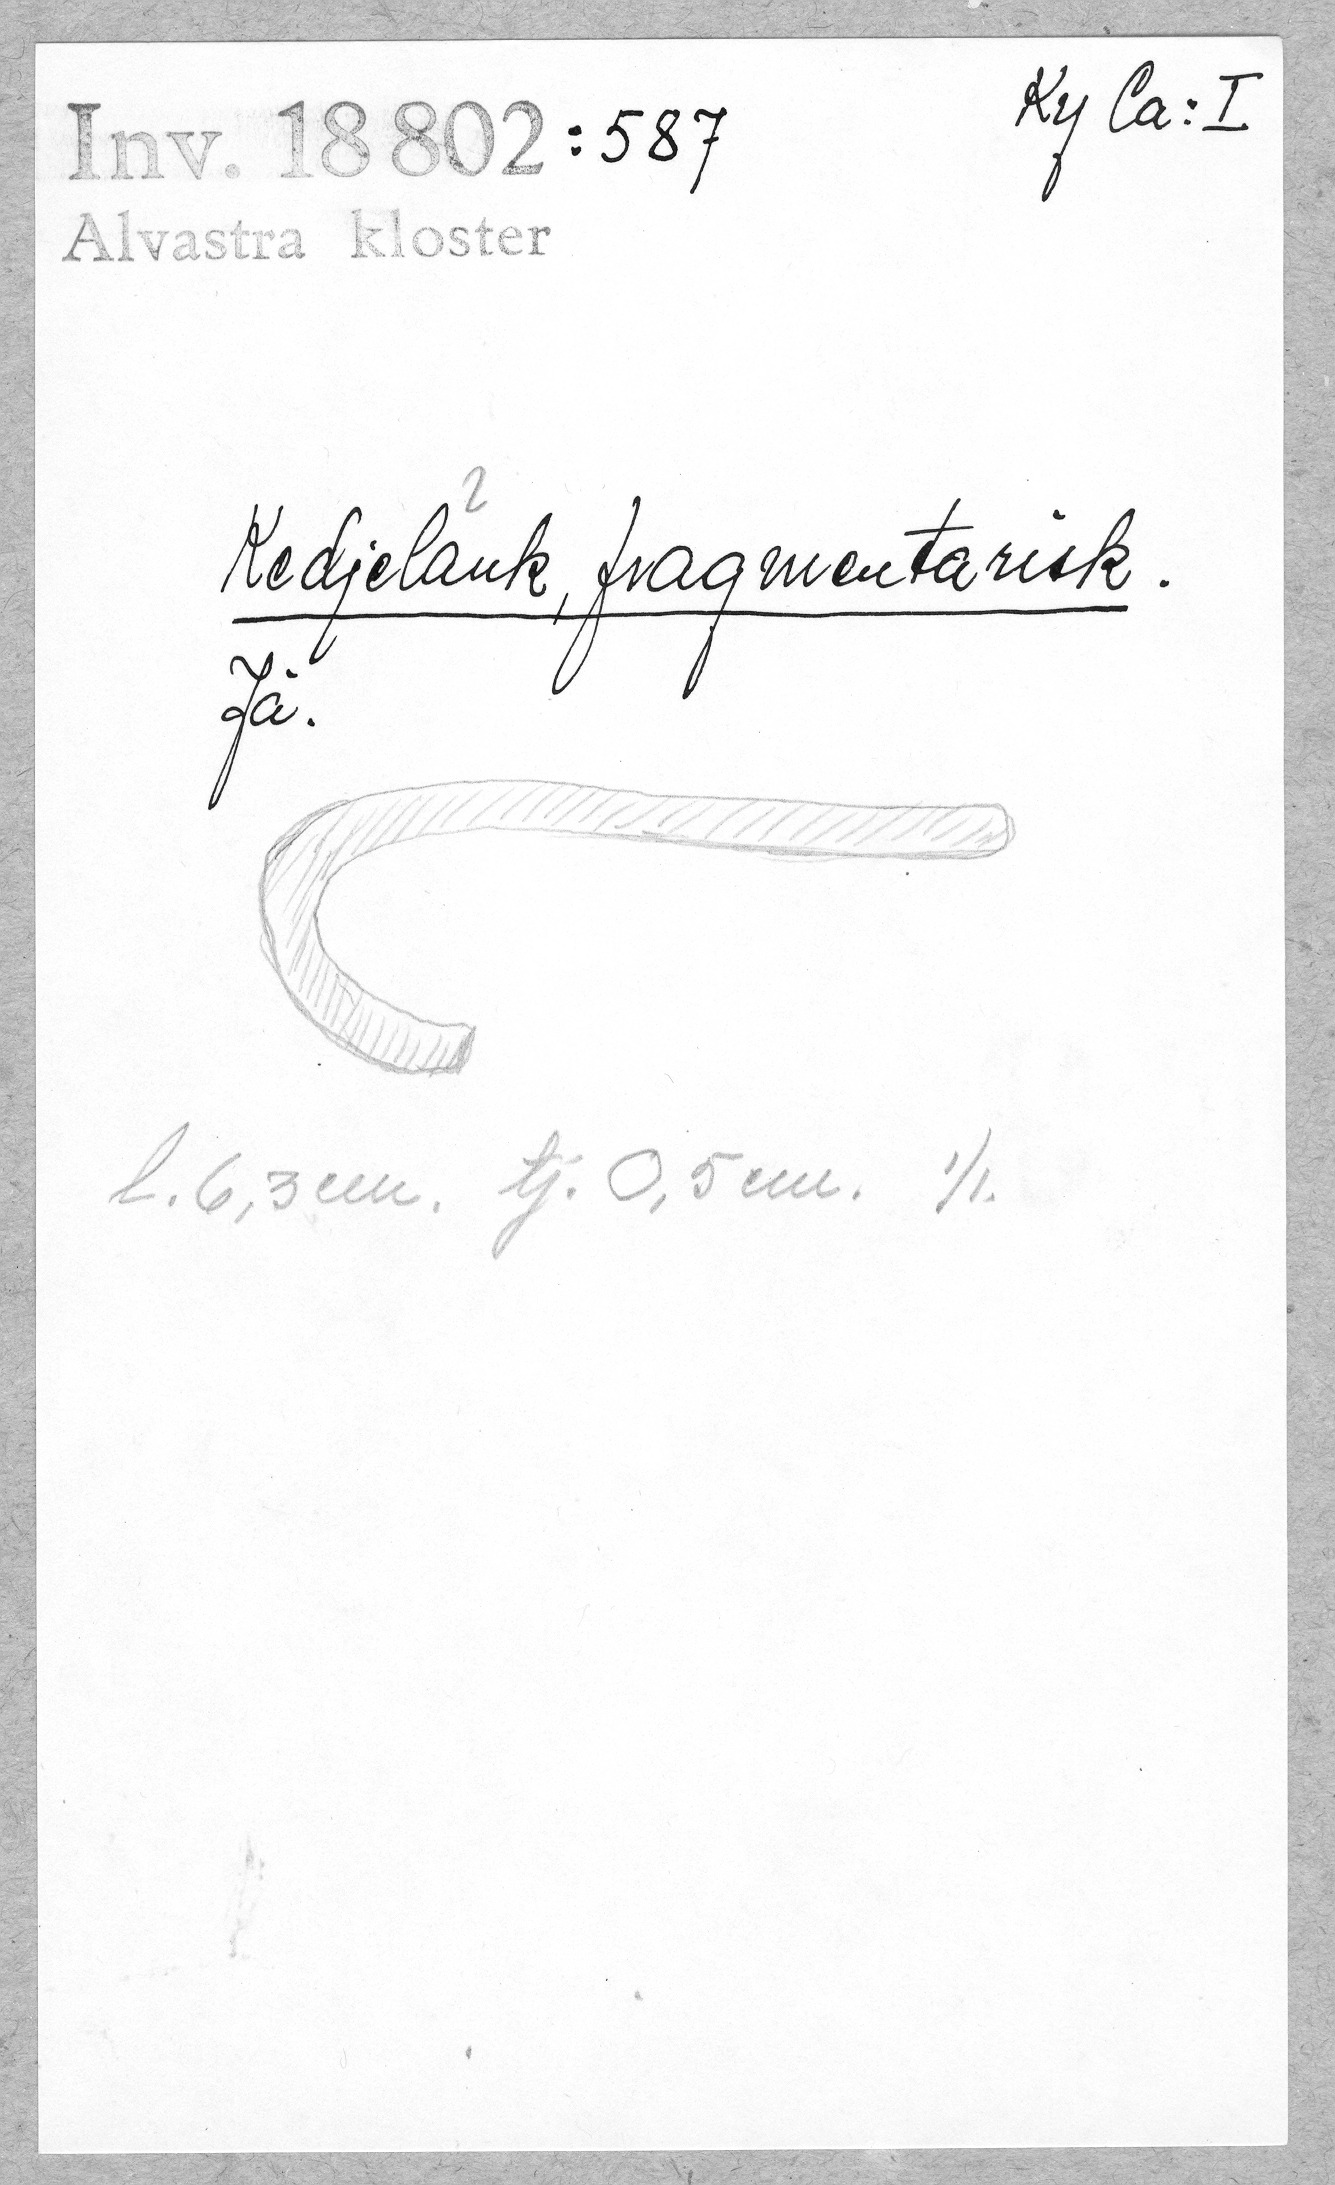 Inv. 18 802 :587
Ky Ca: I
Alvastra kloster
?
Kedjelänk, fragmentarisk.
Jä.
l. 6,3 cm. tj. 0,5 cm. 1/1.